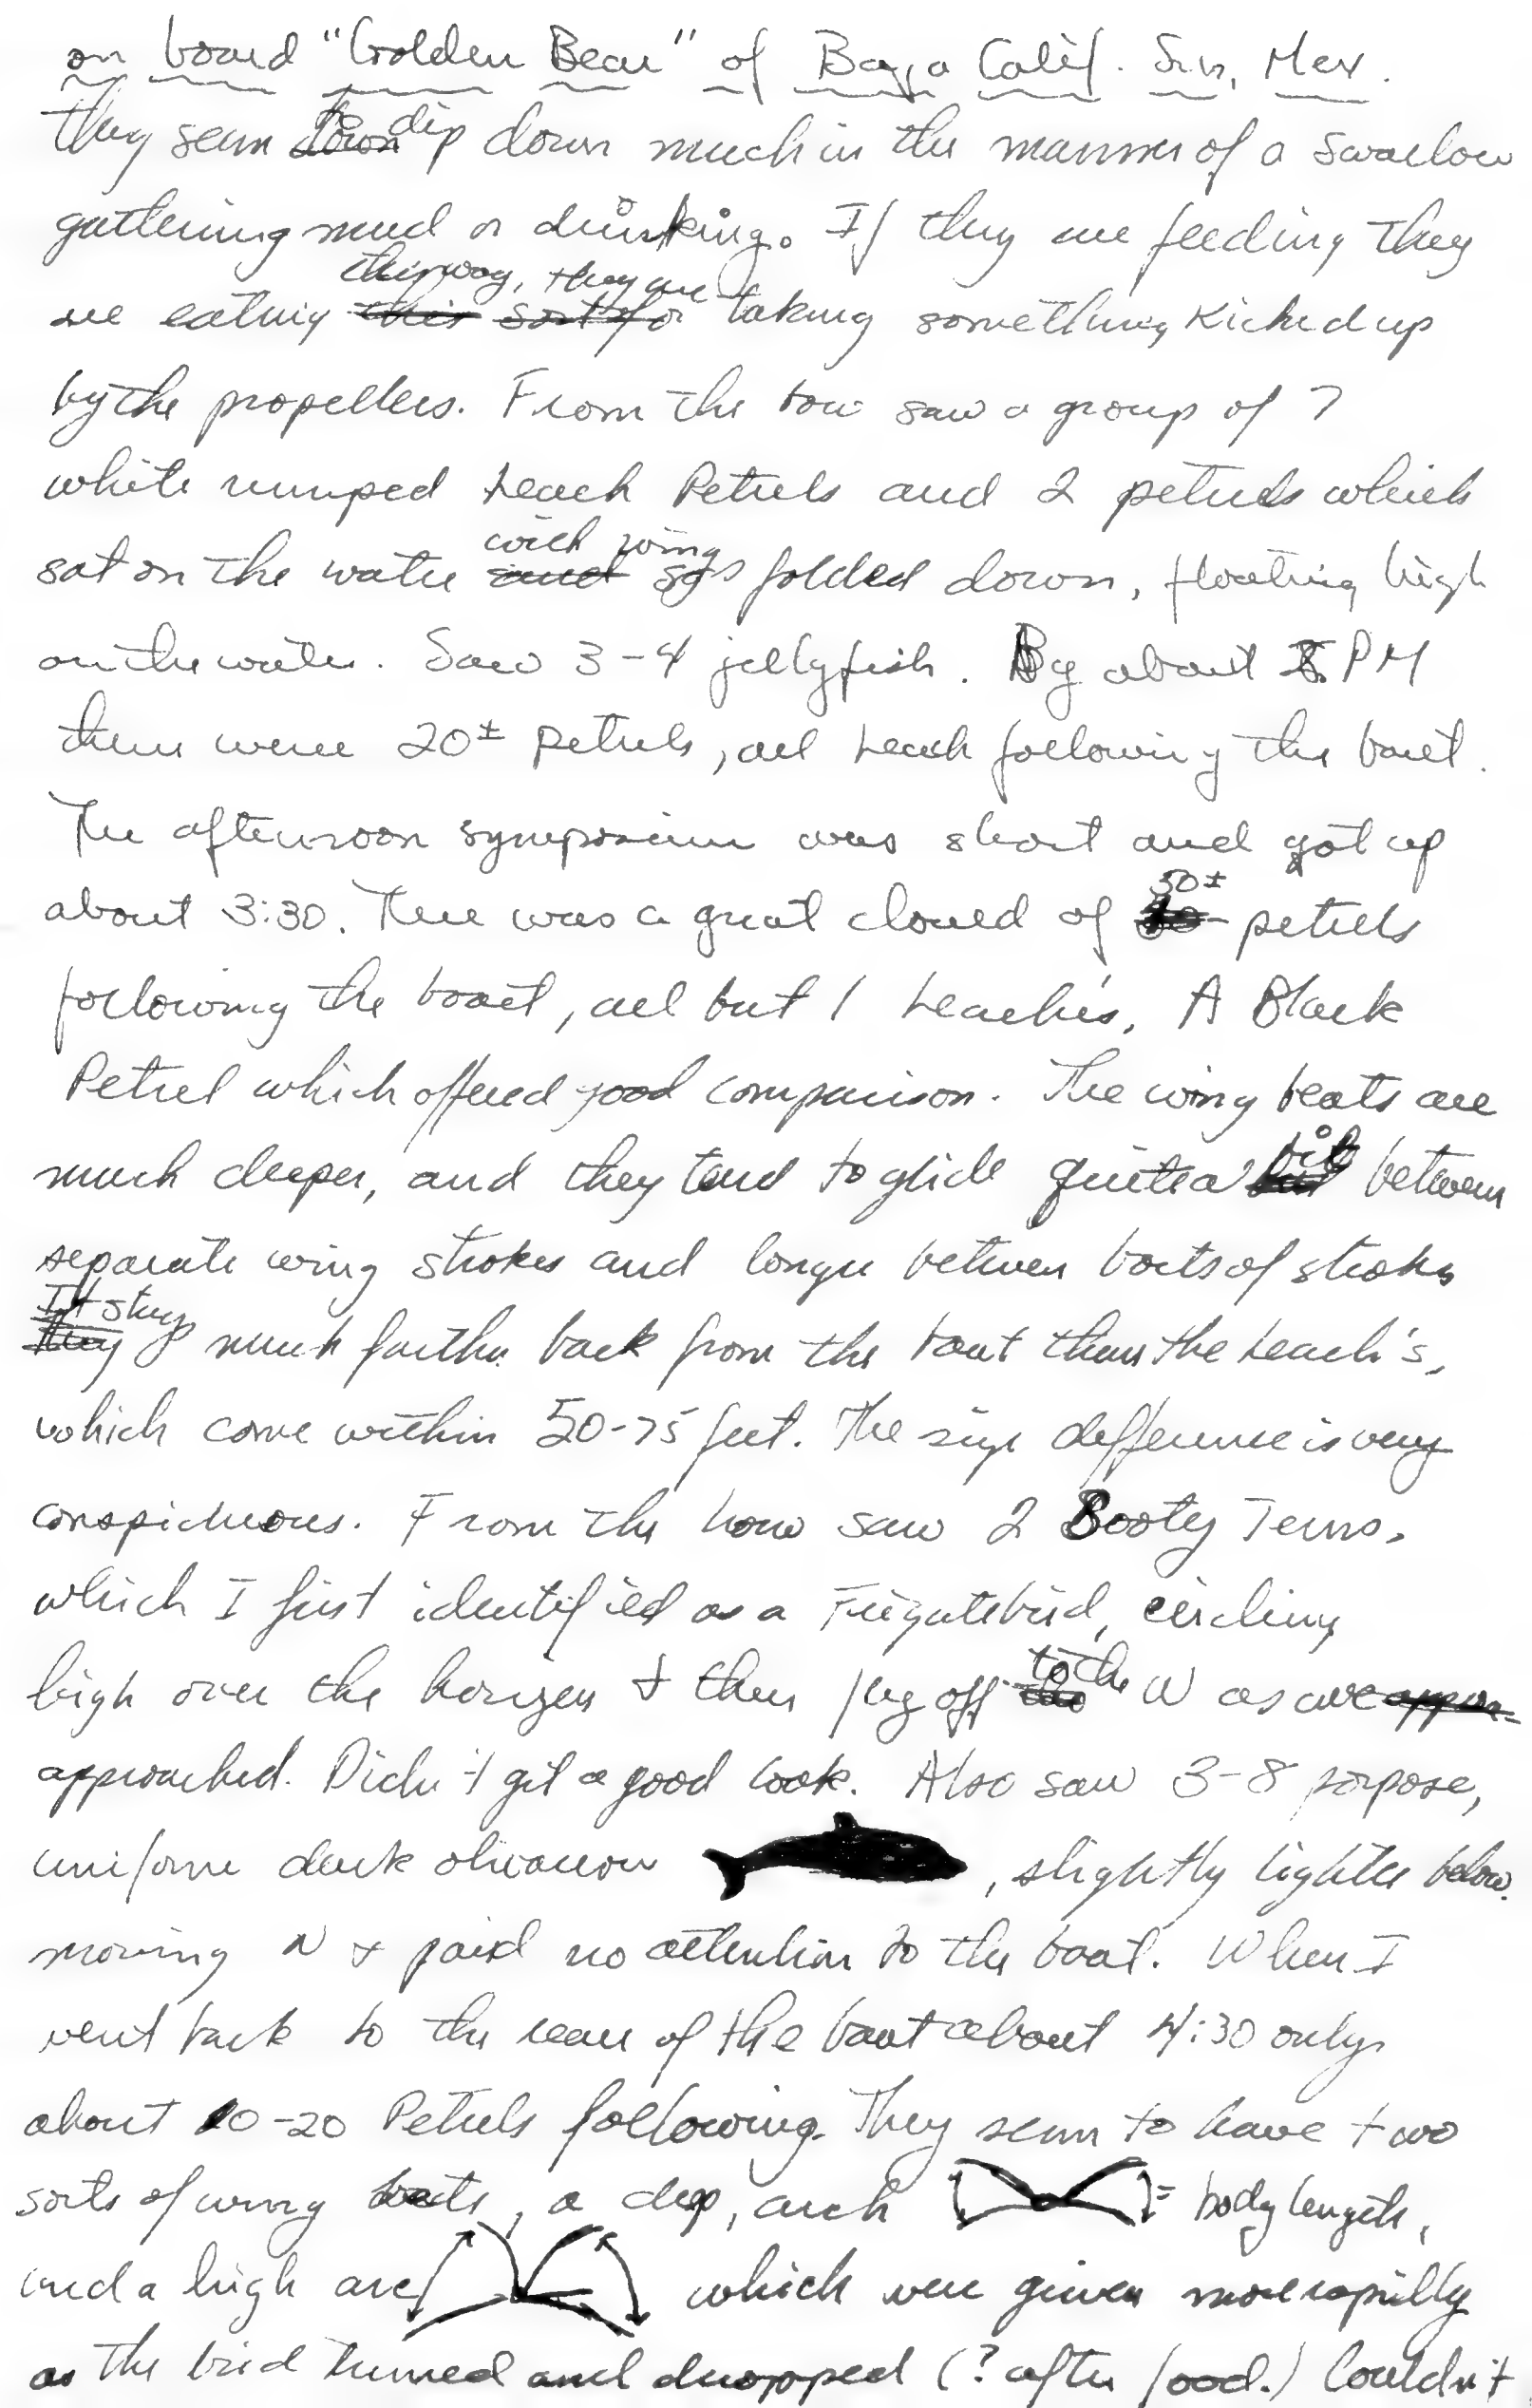 on board "Golden Bear" of Baja Calif. Sur, Mex.
they seem to dip down much in the manner of a swallow
gathering mud or drinking. If they are feeding they
are eating this way, they are taking something kicked up
by the propellers. From the bow saw a group of 7
white rumped Leach Petrels and 2 petrels which
sat on the water with wings folded down, floating high
on the water. Saw 3-4 jellyfish. By about PM
there were 20± petrels, all Leach following the boat.
The afternoon symposium was short and got up
about 3:30. There was a great cloud of 50± petrels
following the boat, all but 1 Leach's. A Black
Petrel which offered good comparison. The wing beats are
much deeper, and they tend to glide quite a bit between
separate wing strokes and longer between bouts of strokes
It stays much farther back from the boat than the Leach's,
which come within 50-75 feet. The size difference is very
conspicuous. From the bow saw 2 Sooty Terns,
which I first identified as a Frigatebird, circling
high over the horizon + then fly off to the W as we
approached. Didn't get a good look. Also saw 3-8 porpose,
uniform dark , slightly lighter below.
moving N + paid no attention to the boat. When I
went back to the rear of the boat about 4:30 only
about 10-20 Petrels following. They seem to have two
sorts of wing beats, a deep, arch = body length,
and a high arc which were given more rapidly
as the bird turned and dropped (? after food.) Couldn't